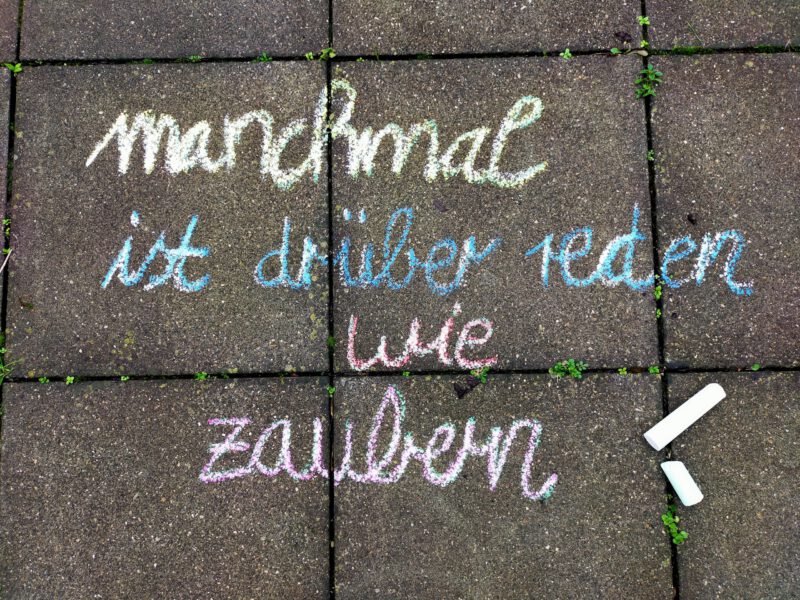 manchmal
ist drüber reden
wie
zaubern